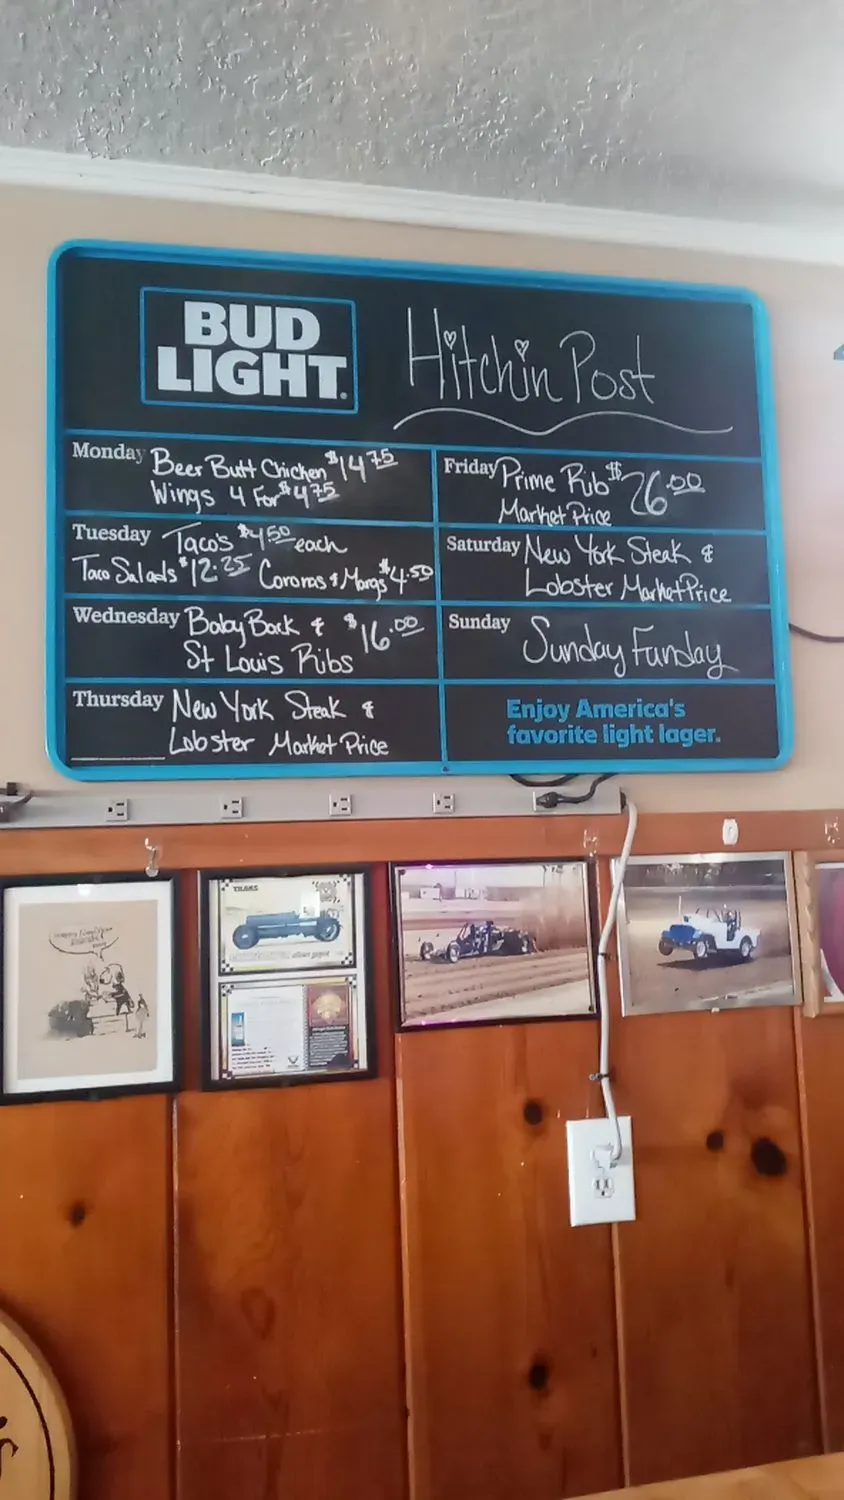 BUD
LIGHT.
Hitchin Post
Monday Beer Butt Chicken $14.75
Wings 4 For $4.75
Tuesday Taco's $4.50 each
Taco Salads $12.25 Coronas & Margs $4.50
Wednesday Baby Back & $16.00
St Louis Ribs
Thursday New York Steak &
Lobster Market Price
Friday Prime Rib $26.00
Market Price
Saturday New York Steak &
Lobster Market Price
Sunday Sunday Funday
Enjoy America's
favorite light lager.